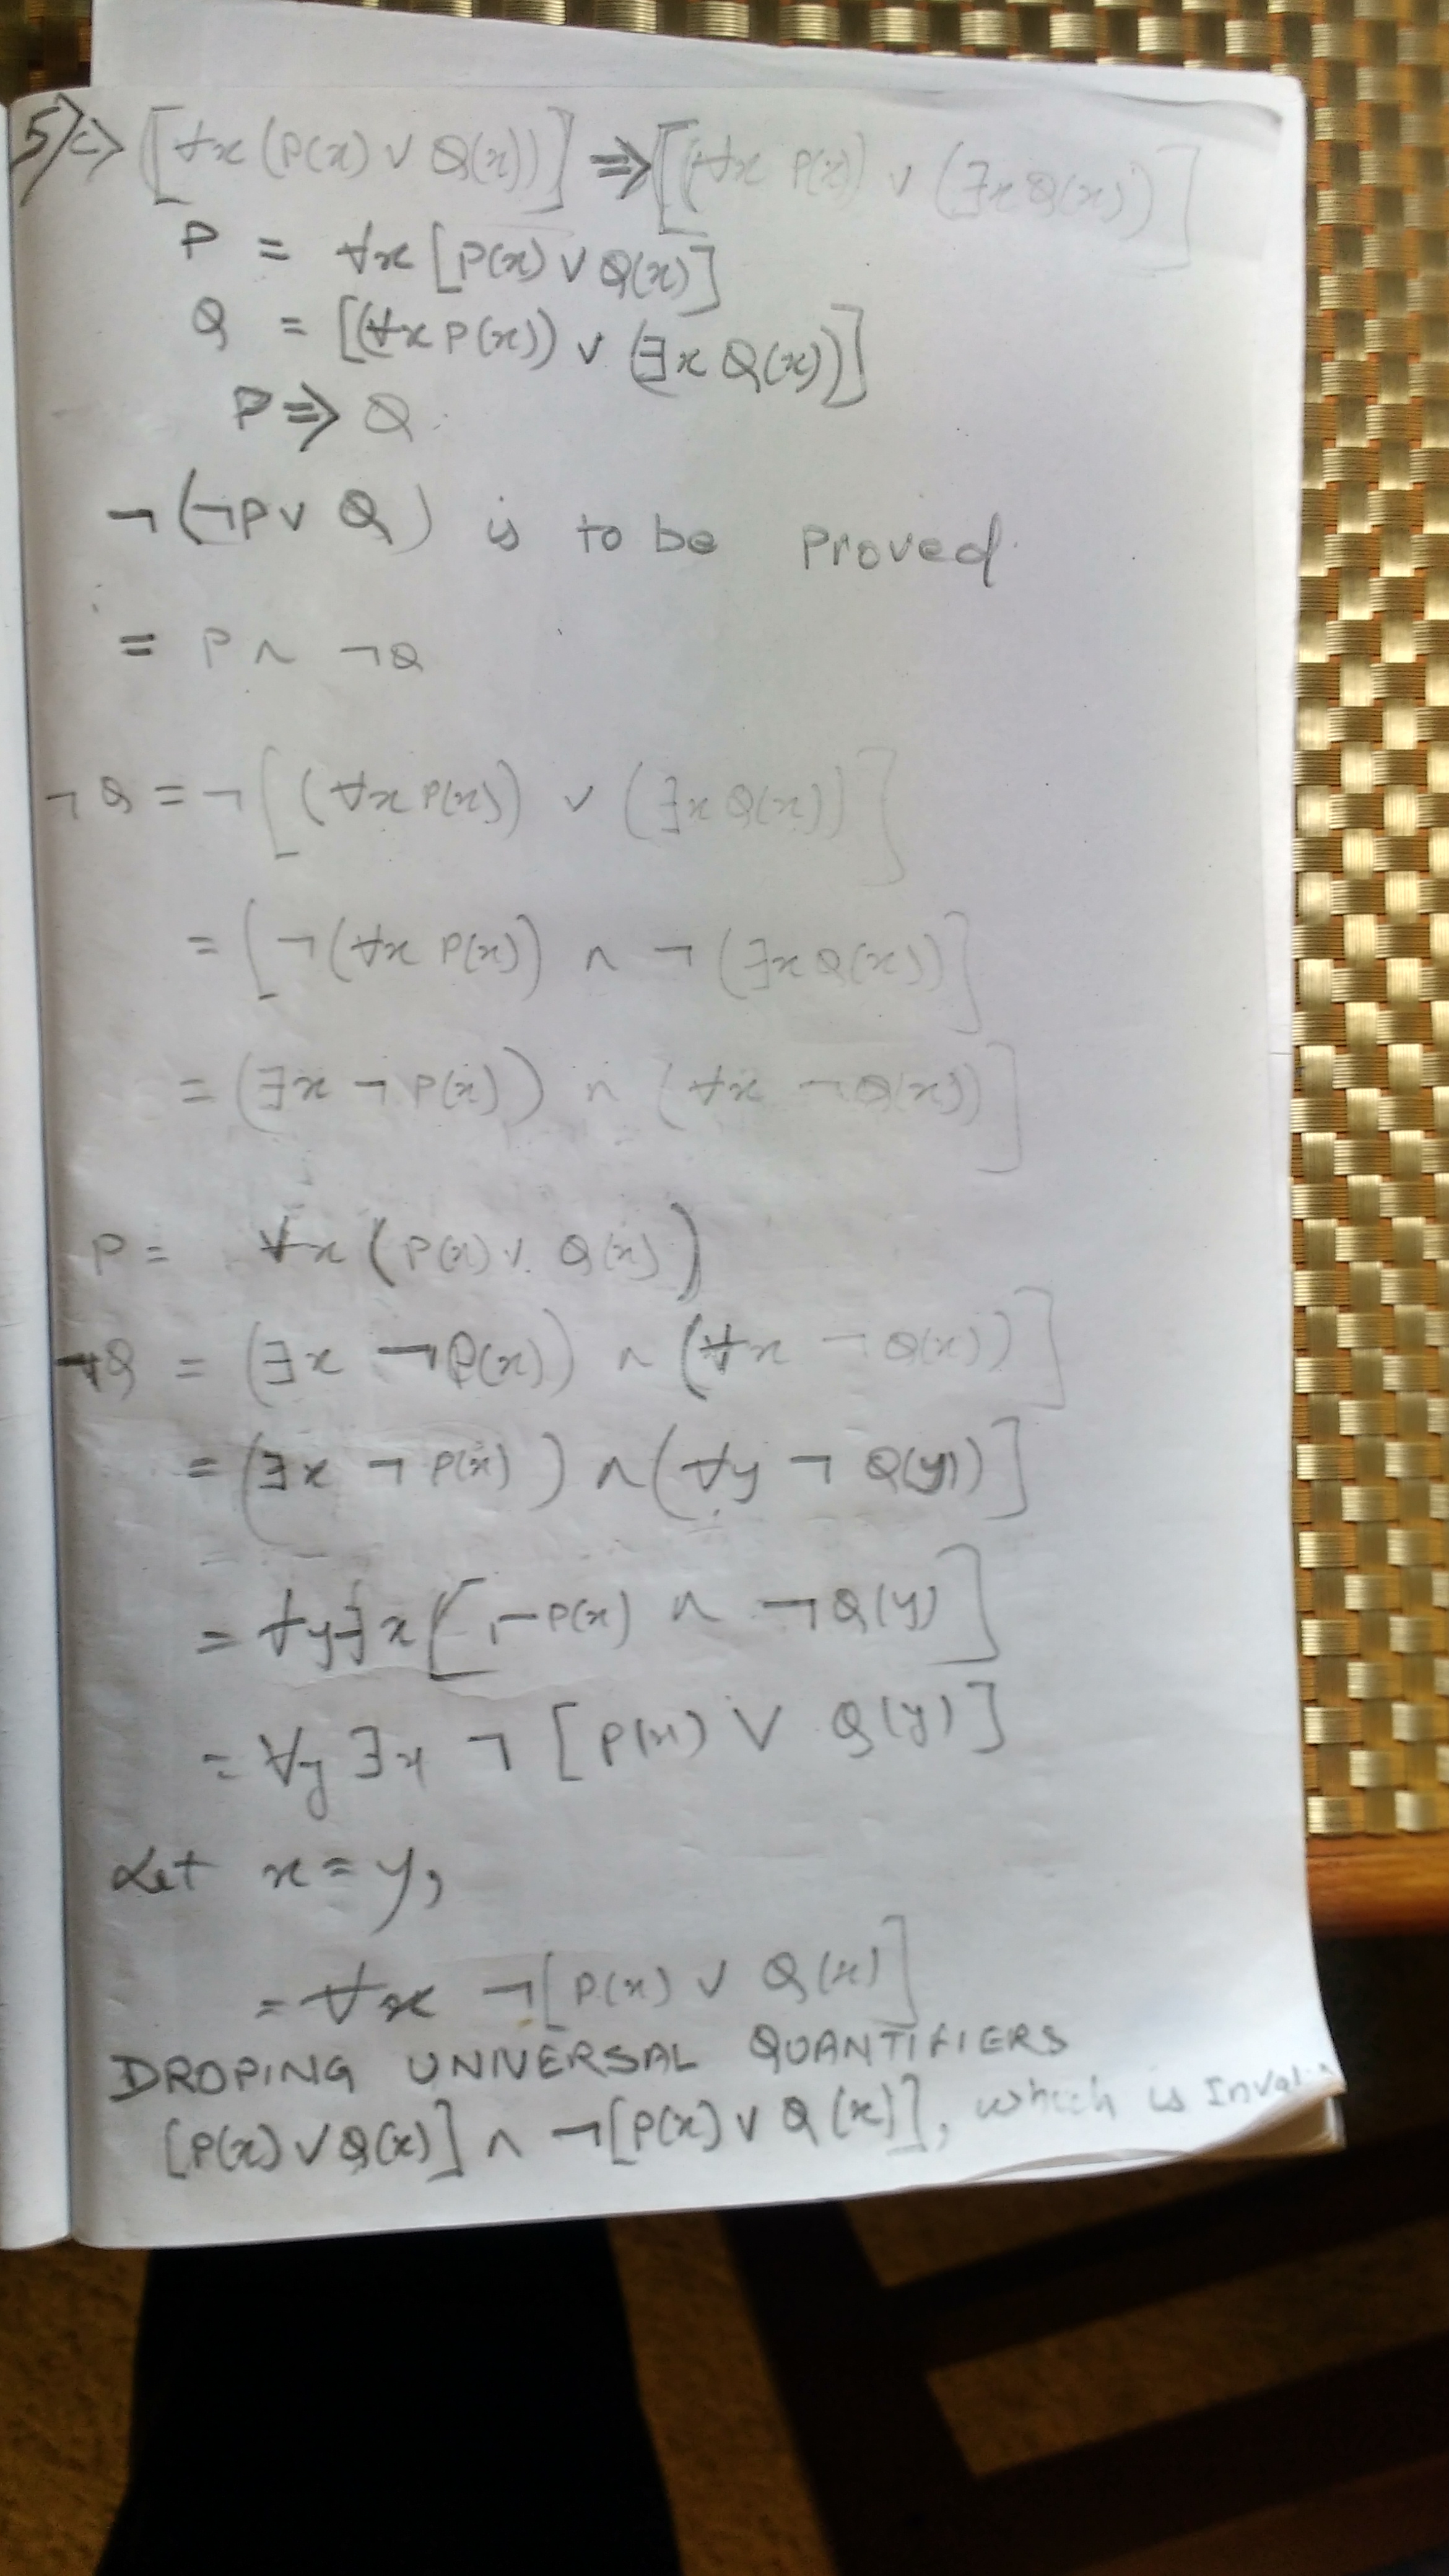 5)c) [∀x (P(x) ∨ Q(x))] ⇒ [(∀x P(x)) ∨ (∃x Q(x))]
P = ∀x [P(x) ∨ Q(x)]
Q = [(∀x P(x)) ∨ (∃x Q(x))]
P ⇒ Q
¬(¬P ∨ Q) is to be proved
= P ∧ ¬Q
¬Q = ¬[(∀x P(x)) ∨ (∃x Q(x))]
= [¬(∀x P(x)) ∧ ¬(∃x Q(x))]
= (∃x ¬P(x)) ∧ (∀x ¬Q(x))]
P = ∀x (P(x) ∨ Q(x))
¬Q = (∃x ¬P(x)) ∧ (∀x ¬Q(x))]
= (∃x ¬P(x)) ∧ (∀y ¬Q(y))]
= ∀y∃x [¬P(x) ∧ ¬Q(y)]
= ∀y ∃x ¬[P(x) ∨ Q(y)]
Let x = y,
= ∀x ¬[P(x) ∨ Q(x)]
DROPING UNIVERSAL QUANTIFIERS
[P(x) ∨ Q(x)] ∧ ¬[P(x) ∨ Q(x)], which is